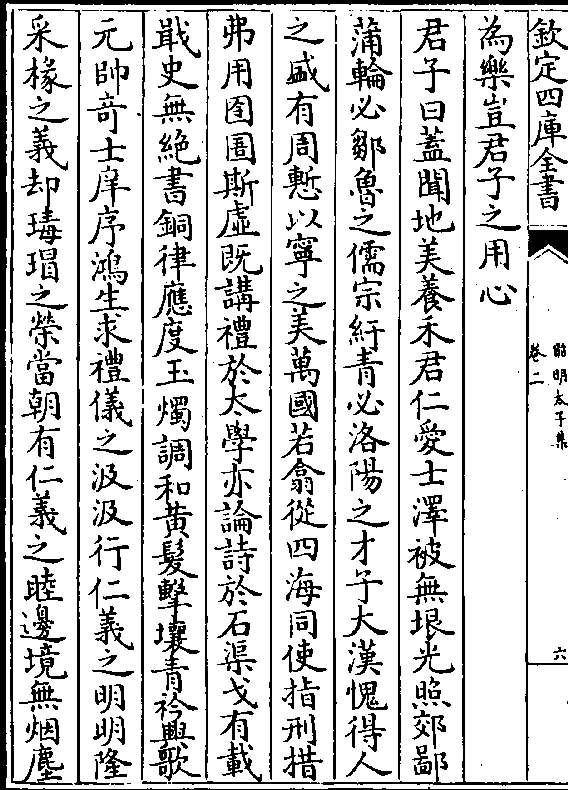 欽定四庫全書
昭明太子集
卷二
六
為樂豈君子之用心
君子曰蓋聞地美養禾君仁愛士澤被無垠光照郊鄙
蒲輪必鄒魯之儒宗紆青必洛陽之才子大漢愧得人
之盛有周慙以寧之美萬國若翕從四海同使指刑措
弗用囹圄斯虛既講禮於太學亦論詩於石渠戈有載
戢史無絶書銅律應度玉燭調和黄髮擊壤青衿興歌
元帥竒士庠序鴻生求禮儀之汲汲行仁義之明明隆
采椽之義却瑇瑁之榮當朝有仁義之睦邊境無烟塵